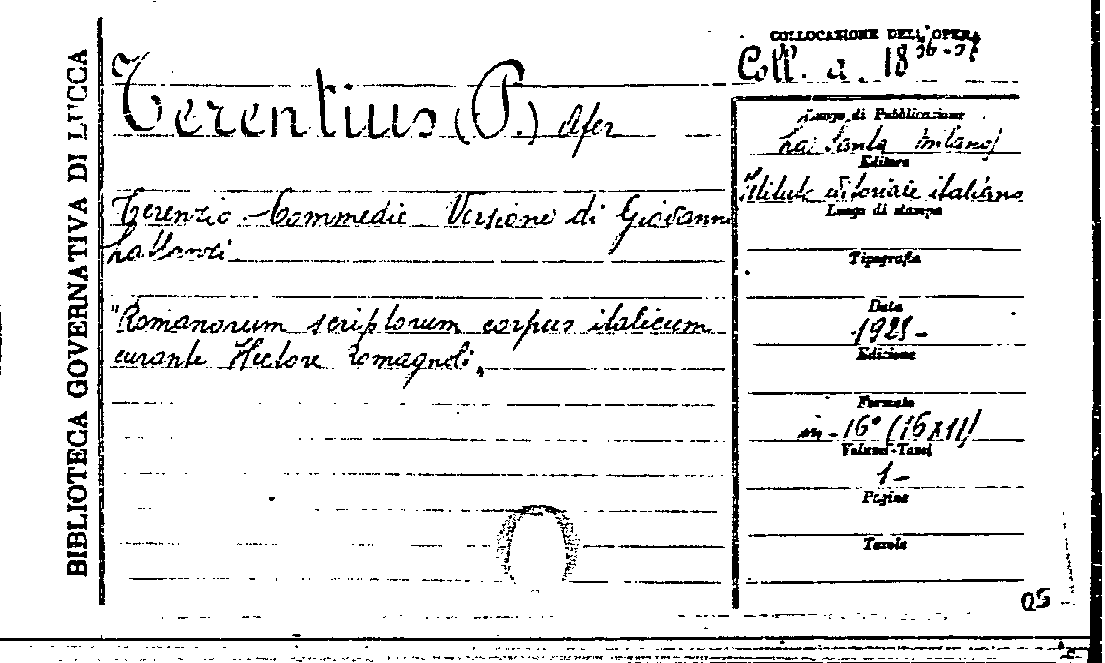 BIBLIOTECA GOVERNATIVA DI LUCCA
COLLOCAZIONE DELL'OPERA
Coll. a. 18
Terentius (P.) Afer
Terenzio - Commedie Versione di Giovanni
Lattanzi
"Romanorum scriptorum corpus italicum
curante Hectore Romagnoli,
Luogo di Pubblicazione
Editore
editoriale italiano
Luogo di stampa
Tipografia
Data
Edizione
Formato
in-16° (16x11)
Volumi-Tomi
1-
Pagine
Tavole
05